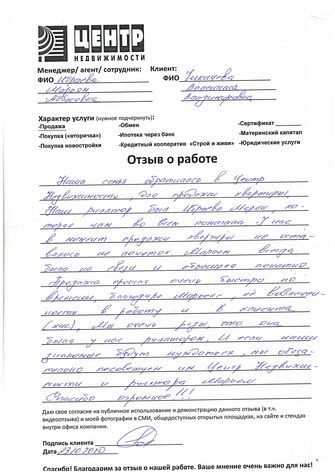 ЦЕНТР
НЕДВИЖИМОСТИ
Менеджер/ агент/ сотрудник: Клиент:
ФИО ФИО
Марьям Валентина
Владимировна
Характер услуги (нужное подчеркнуть):
-Продажа -Обмен -Сертификат
-Покупка «вторичка») -Ипотека через банк -Материнский капитал
-Покупка новостройки -Кредитный кооператив «Строй и живи» -Юридические услуги
Отзыв о работе
Наша семья обратилась в Центр
Недвижимости, для продажи квартиры.
Наш риэлтор был Марьям, ко-
торая нам во всем помогала. У нас
в момент продажи квартиры не оста-
валось не Марьям всегда
была на связи и
Продажа прошла очень быстро по
времени, благодаря Марьям, её вовлечен-
ности в работу и в клиента
(нас). Мы очень рады, что она
была у нас риэлтором. И если наши
знакомые будут нуждаться, мы обяза-
тельно посоветуем им Центр Недвижи-
мости и риэлтора Марьям
Спасибо огромное!!!
Даю свое согласие на публичное использование и демонстрацию данного отзыва (в т.ч.
видеоотзыва) и моей фотографии в СМИ, общественных открытых площадках, на сайте и стендах
внутри офиса компании.
Подпись клиента
Дата 13.10.2020
Спасибо! Благодарим за отзыв о нашей работе. Ваше мнение очень важно для нас!